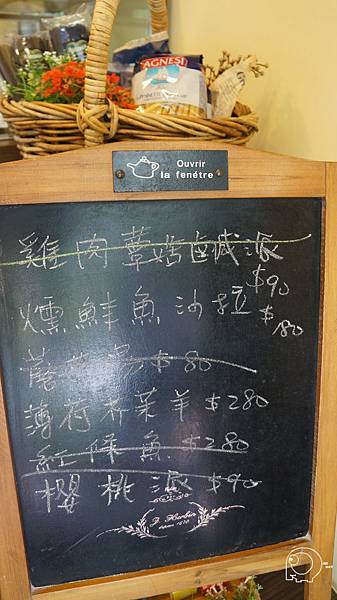 AGNESI
Ouvrir
la fenêtre
雞肉蘑菇鹹派
$90
燻鮭魚沙拉 $180
蘑菇湯 $80
薄荷芥茉羊 $280
紅條魚 $280
櫻桃派 $90
J. Herbin